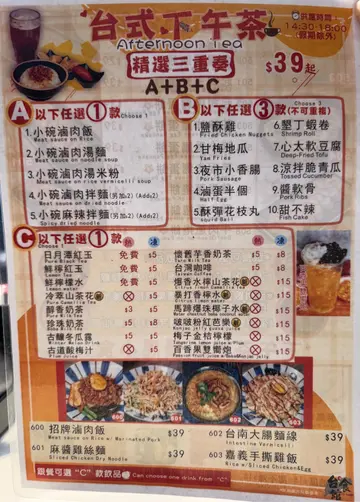 台式下午茶
Afternoon Tea
供應時間
14:30-18:00
(假期除外)
精選三重奏
A+B+C
$39起
A 以下任選①款 Choose 1
1.小碗滷肉飯
Meat sauce on rice
2.小碗滷肉湯麵
Meat sauce on noodle soup
3.小碗滷肉湯米粉
Meat sauce on rice vermicelli soup
4.小碗滷肉拌麵(另加$2)(Add$2)
Meat sauce on dried noodle
5.小碗麻辣拌麵(另加$2)(Add$2)
Spicy dried noodle
B 以下任選③款(不可重複)
Choose 3
1.鹽酥雞
Fried Chicken Nuggets
2.甘梅地瓜
Yam Fried
3.夜市小香腸
Pork Sausage
4.滷蛋半個
Half Egg
5.酥彈花枝丸
squid Ball
6.墾丁蝦卷
Shrimp Roll
7.心太軟豆腐
Deep-Fried Tofu
8.涼拌脆青瓜
Tossed Cucumber
9.醬軟骨
Pork Ribs
10.甜不辣
Fish Cake
C 以下任選①款
Choose 1
熱 凍
日月潭紅玉 免費 $5
Pure Black Tea
鮮檸紅玉 免費 $5
Lemon Tea
鮮檸檬水 免費 $5
Lemon Water
冷萃山茶花 $5
醇香奶茶 $3 $5
Milk Tea
珍珠奶茶 $5 $8
古釀冬瓜露 $5
古道酸梅汁 $5
熱 凍
懷舊芋香奶茶 $5 $8
台灣咖啡 $5 $8
爆香水檸山茶花 $15
暴打香檸水 $15
馬蹄爆珠椰子水 $15
啵啵粉紅芭樂 $15
梅子金桔檸檬 $15
百香果雙響炮 $15
600 招牌滷肉飯 $39
Meat sauce on Rice w/ Marinated Pork
601 麻醬雞絲麵 $39
Sliced Chicken Dry Noodle
602 台南大腸麵線 $39
Intestine Vermicelli
603 嘉義手撕雞飯 $39
Rice w/Sliced Chicken&Egg
跟餐可選 "C" 款飲品 Can choose one drink from "C"